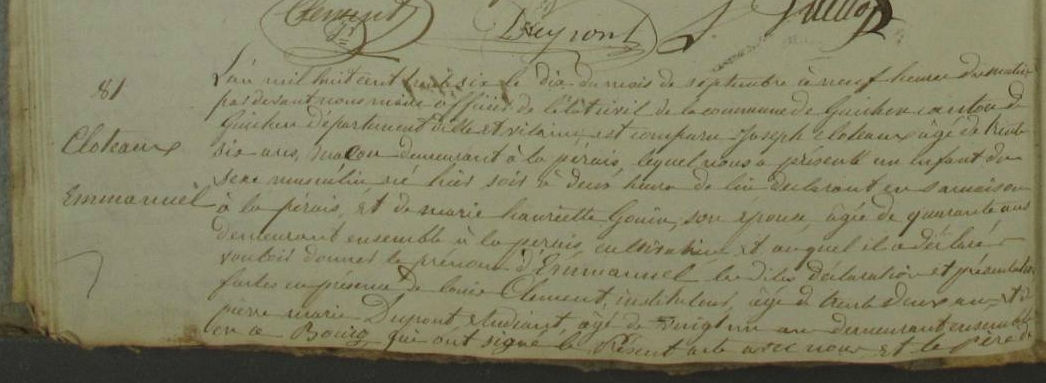 Clement Dupont
81
Cloteaux
Emmanuel
L'an mil huit cent trente six le dix du mois de septembre à neuf heures du matin
par devant nous maire officier de l'état civil de la commune de Guichen canton de
Guichen département d'ille et vilaine, est comparu Joseph Cloteaux âgé de trente
six ans, maçon demeurant à la pérais, lequel nous a présenté un enfant du
sexe masculin né hier soir à deux heures de lui déclarant, en sa maison
à la perais, et de marie henriette Gouin, son épouse, âgée de quarante ans
demeurant ensemble à la perais, et auquel il a déclaré
vouloir donner le prénom d'Emmanuel les dites déclaration et présentation
faites en présence de louis Clement, instituteur, âgé de trente deux ans et de
pierre marie Dupont étudiant, âgé de vingt un an demeurant ensemble
en ce Bourg qui ont signé le Présent acte avec nous et le père de